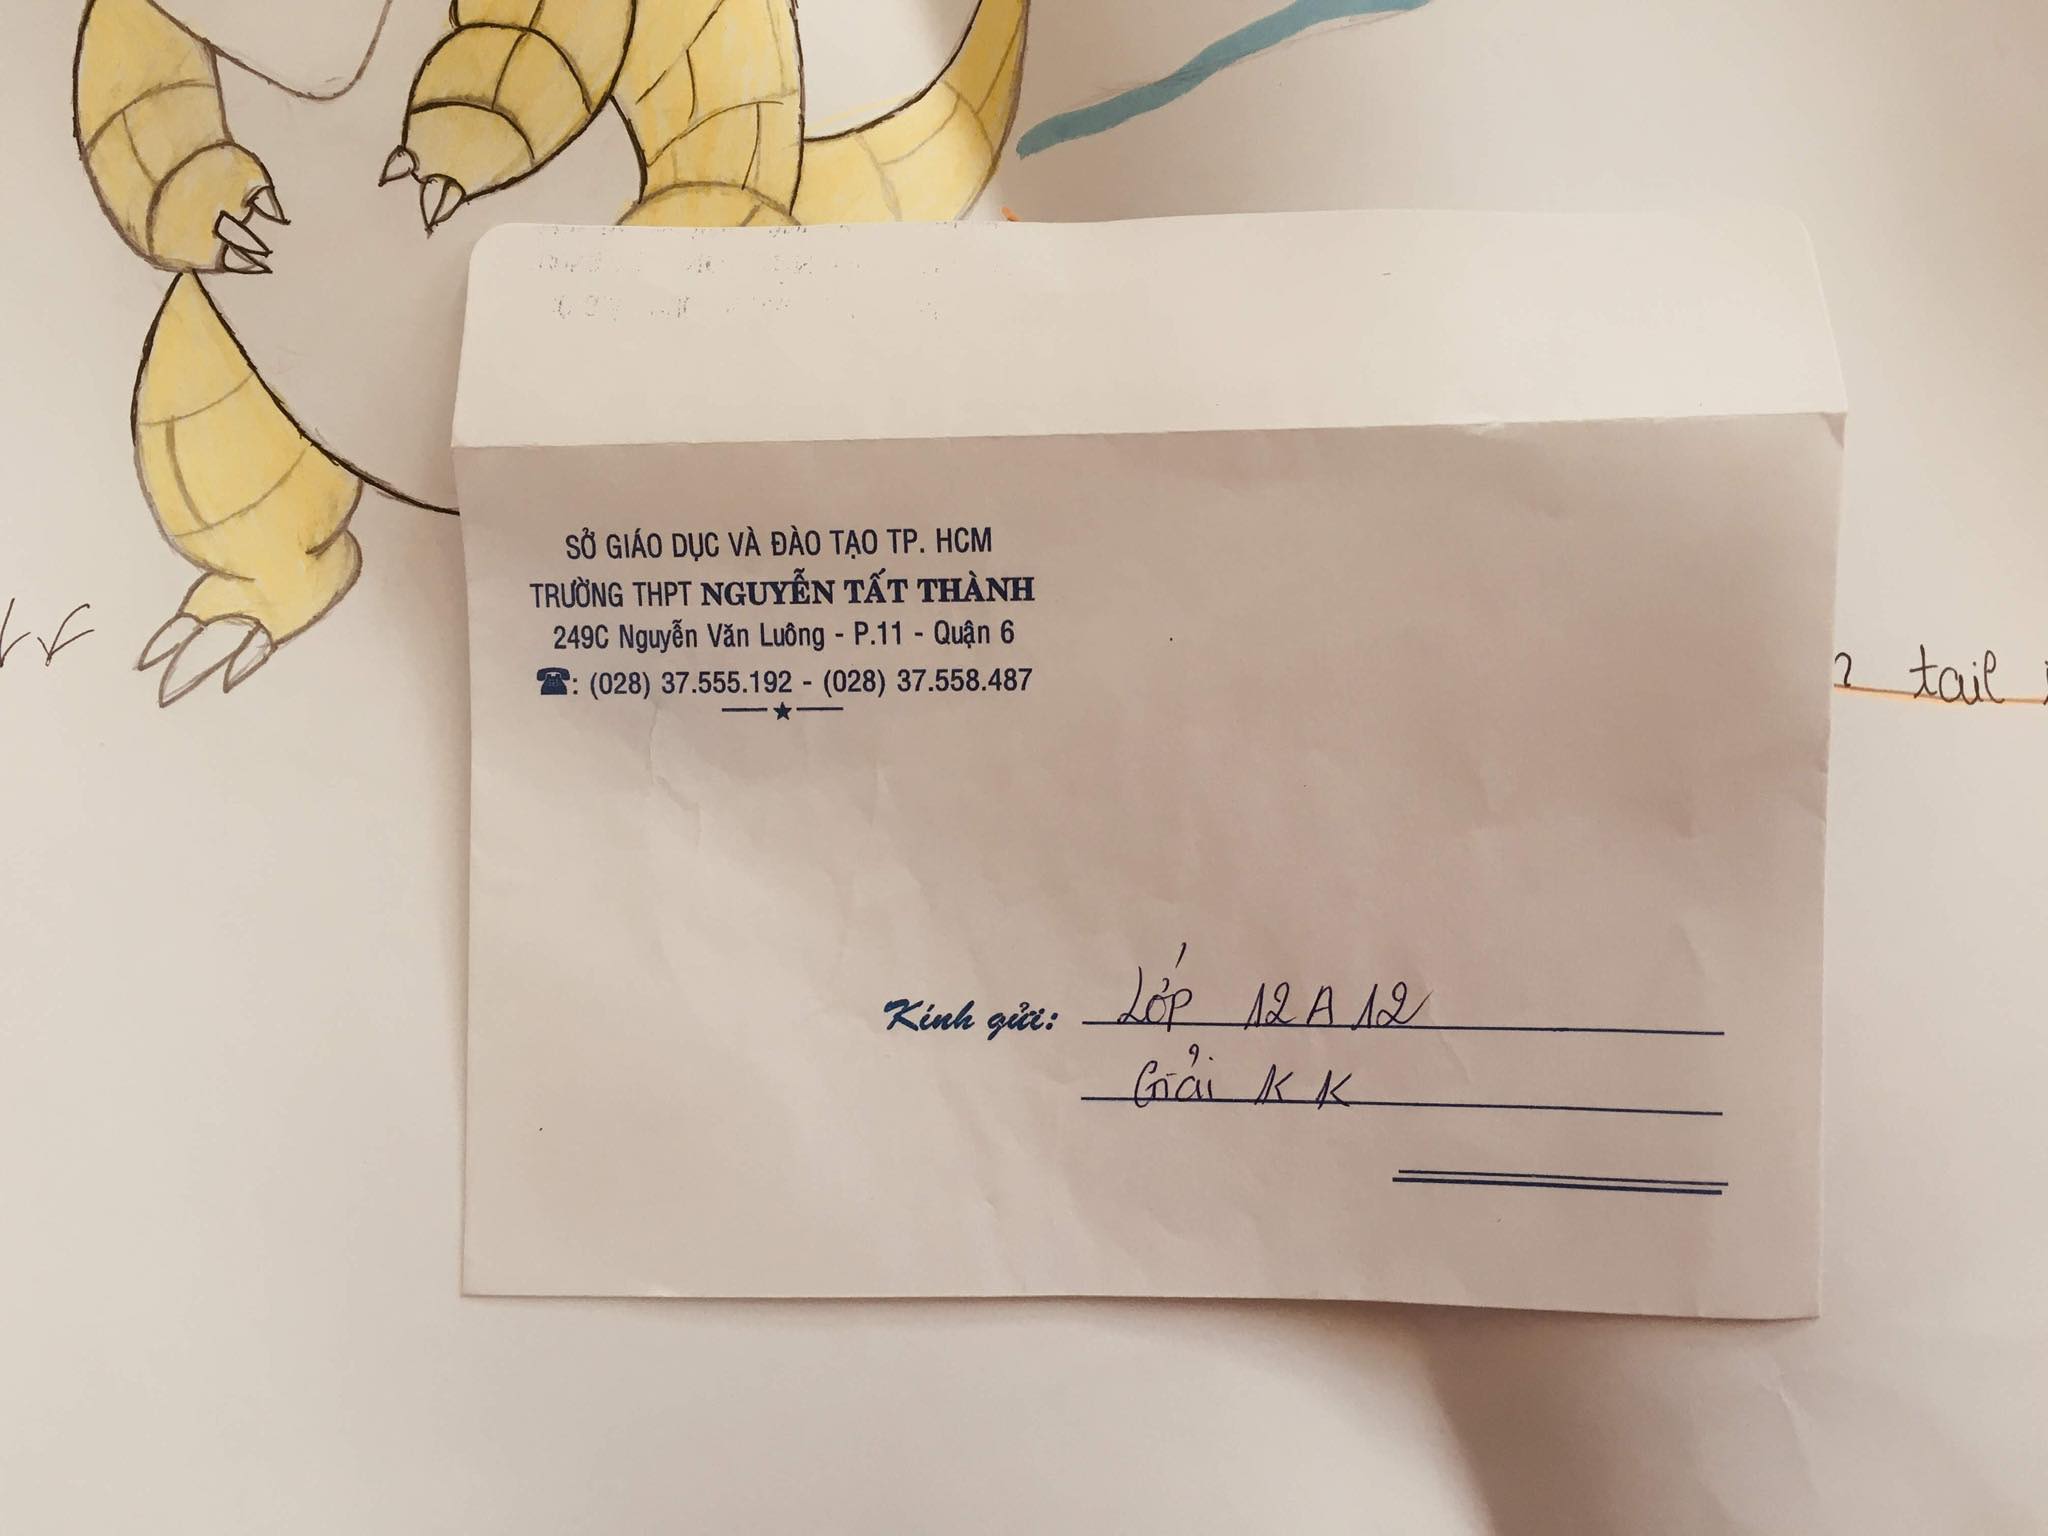 SỞ GIÁO DỤC VÀ ĐÀO TẠO TP. HCM
TRƯỜNG THPT NGUYỄN TẤT THÀNH
249C Nguyễn Văn Luông - P.11 - Quận 6
☎: (028) 37.555.192 - (028) 37.558.487
tail
Kính gửi: Lớp 12A12
Giải KK